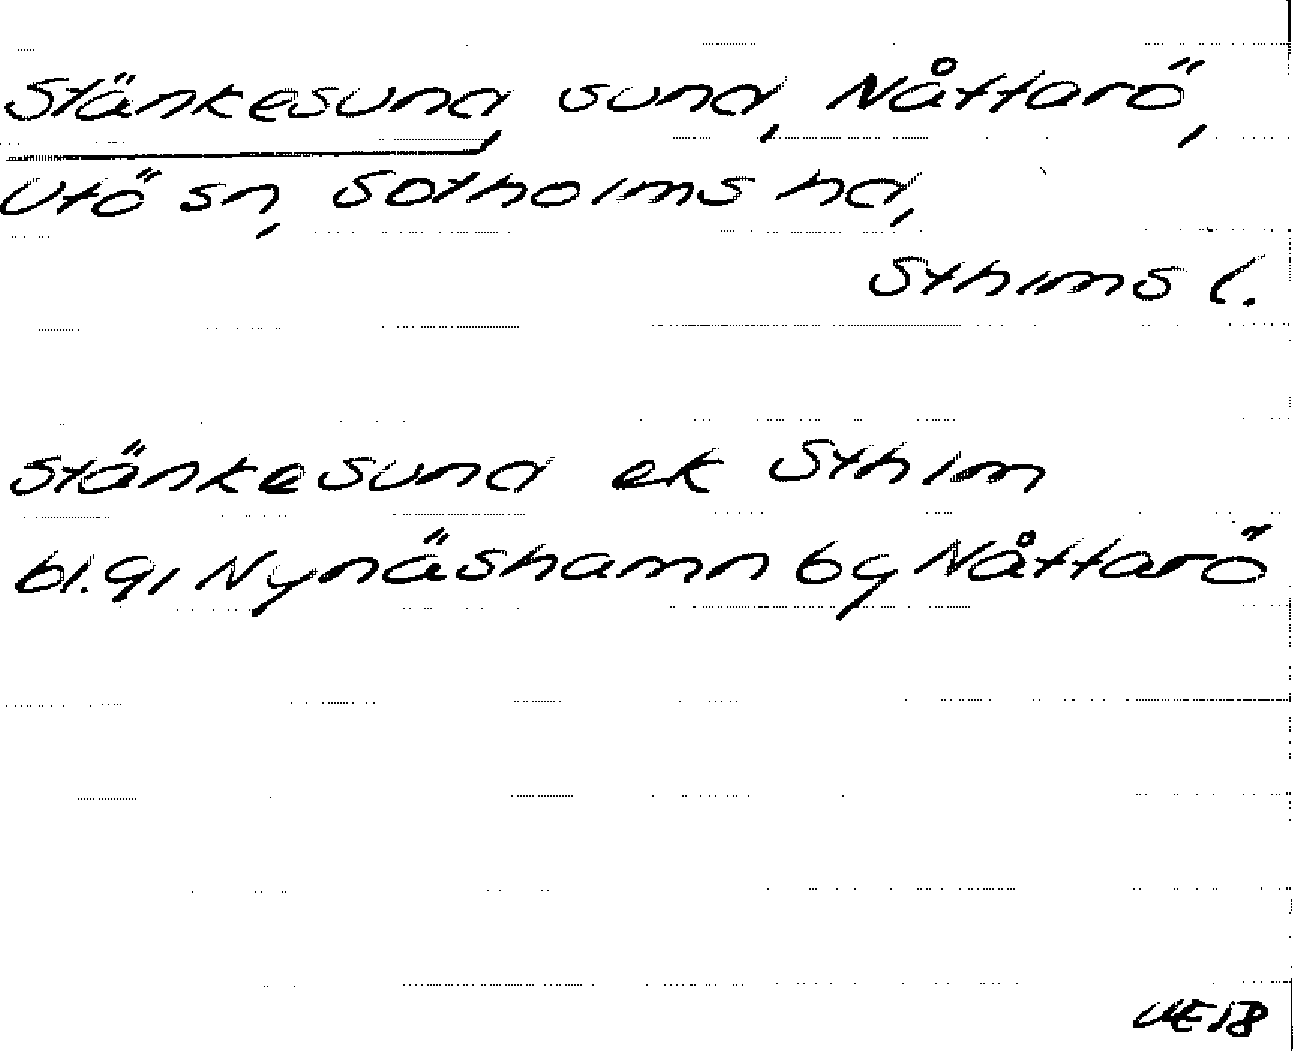 Stänkesund, sund, Nåttarö,
Utö sn, Sotholms hd,
Sthlms l.
Stänkesund ek Sthlm
bl. 91 Nynäshamn by Nåttarö